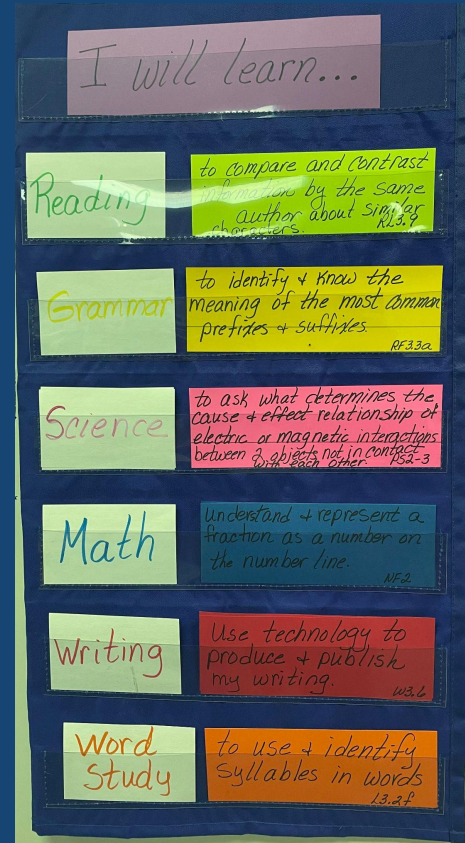 I will learn...
Reading
to compare and contrast
information by the same
author about similar
characters. RL3.9
Grammar
to identify & know the
meaning of the most common
prefixes & suffixes.
RF3.3a
Science
to ask what determines the
cause & effect relationship of
electric or magnetic interactions
between 2 objects not in contact
with each other. PS2-3
Math
understand & represent a
fraction as a number on
the number line.
NF2
Writing
Use technology to
produce & publish
my writing.
W3.6
Word
Study
to use & identify
Syllables in words
L3.2f